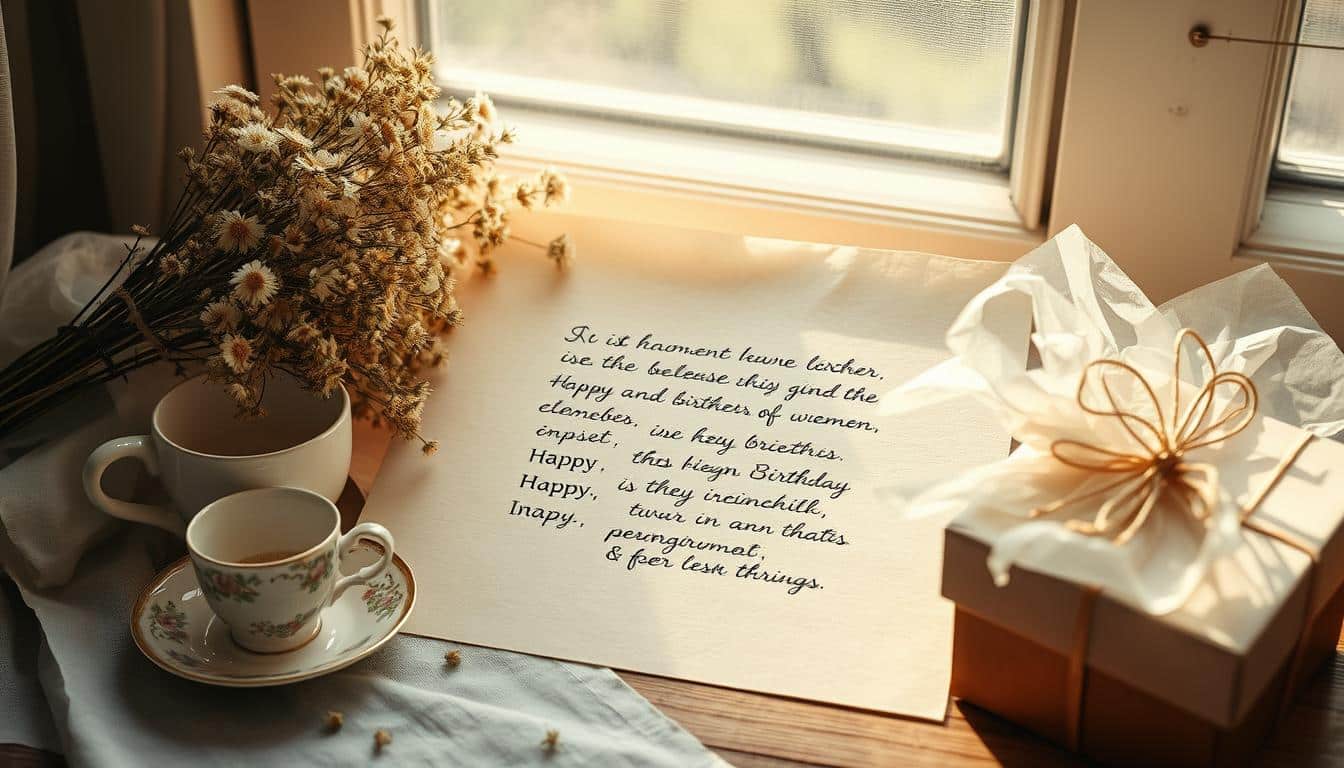 Rc ist haoment leune lercher,
ise the belease thiy gind the
Happy and birthers of wiemen,
elemebes, ise hey briethis.
inpset, this hiegn Birthday
Happy, is they ircimchilk,
Happy., twur in ann thatis
Inapy., perungirumot,
& feer lesh thrings.